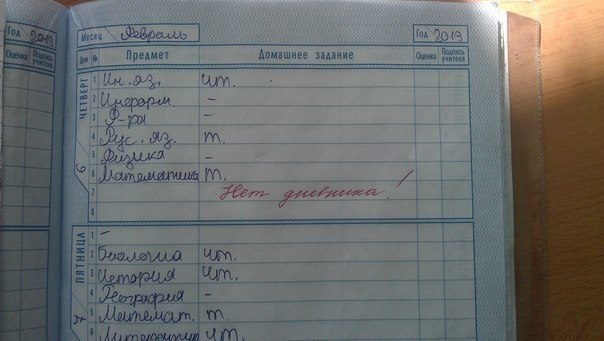 Год 2013
Оценка Подпись учителя
Месяц Февраль Год 2013
Дни № Предмет Домашнее задание Оценка Подпись учителя
ЧЕТВЕРГ
1 Ин. яз. чт.
2 Информ. -
3 Ф-ра -
4 Рус. яз. т.
5 Физика -
6 Математика т.
7 Нет дневника!
8
ПЯТНИЦА
1 -
2 Биология чт.
3 История чт.
4 География -
5 Математ. т.
6 Литератур чт.